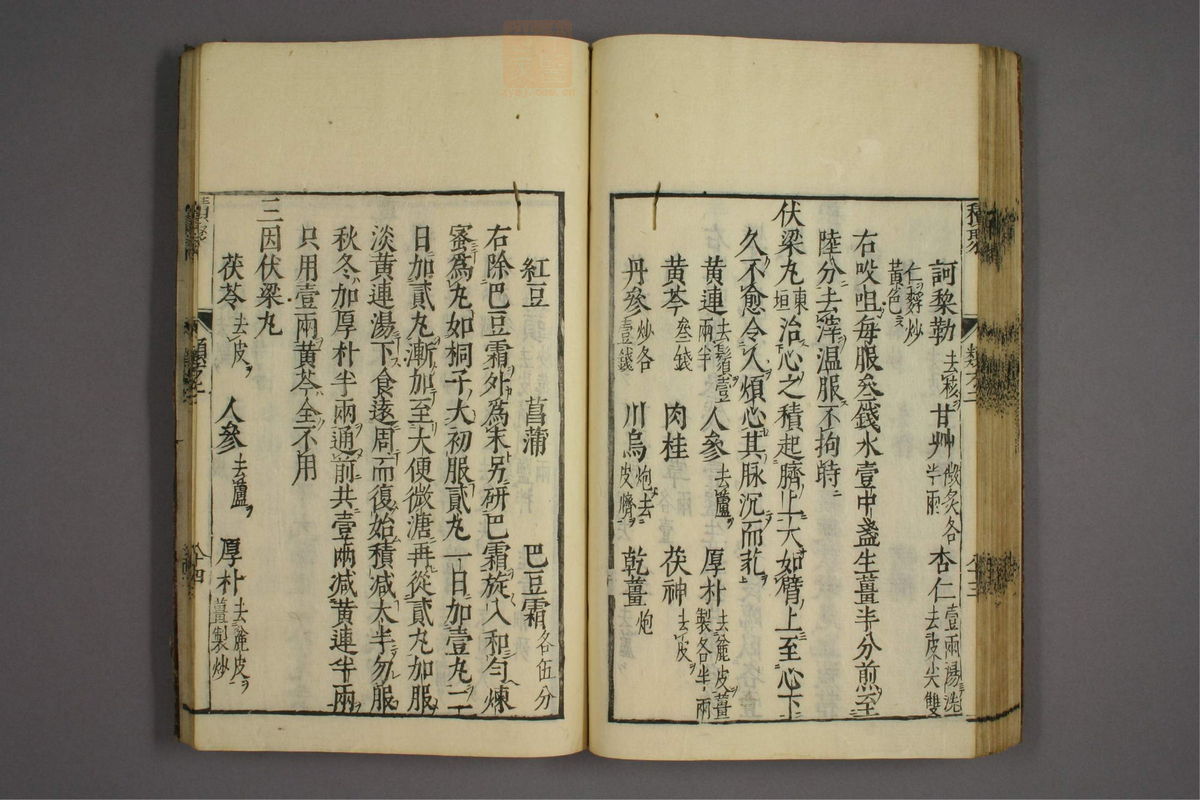 訶黎勒去核 甘艸微炙各半兩 杏仁壹兩湯洗去皮尖雙
仁麩炒黃色
右㕮咀每服叄錢水壹中盞生薑半分煎至
陸分去滓温服不拘時
伏梁丸東垣治心之積起臍上大如臂上至心下
久不愈令人煩心其脉沉而芤
黃連去鬚壹兩半 人參去蘆 厚朴去麄皮薑製各半兩
黃芩叄錢 肉桂 茯神去皮
丹參炒各壹錢 川烏炮去皮臍 乾薑炮
紅豆 菖蒲 巴豆霜各伍分
右除巴豆霜外為末另研巴霜旋入和勻煉
蜜為丸如桐子大初服貳丸一日加壹丸二
日加貳丸漸加至大便微溏再從貳丸加服
淡黃連湯下食遠周而復始積減太半勿服
秋冬加厚朴半兩通前共壹兩減黃連半兩
只用壹兩黃芩全不用
三因伏梁丸
茯苓去皮 人參去蘆 厚朴去麄皮薑製炒